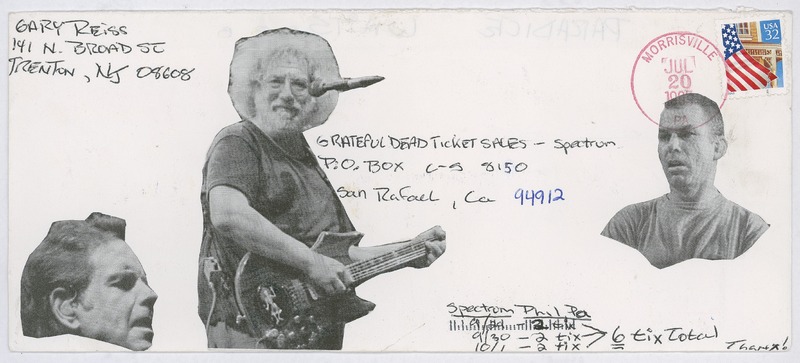 GARY REISS
141 N. BROAD ST
TRENTON, NJ 08608
MORRISVILLE
JUL
20
1995
PA
USA
32
GRATEFUL DEAD TICKET SALES - Spectrum
P.O. BOX C-S 8150
San Rafael, Ca 94912
Spectrum Phil Pa
2 tix
9/30 - 2 tix > 6 tix Total
10/1 - 2 tix
Thanx!